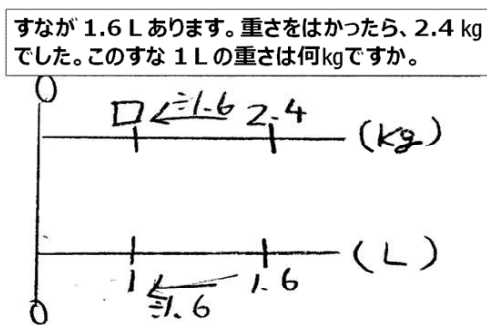 すなが 1.6 L あります。重さをはかったら、2.4 kg
でした。このすな 1 L の重さは何kgですか。
0
□ ÷1.6 2.4 (kg)
(L)
1 1.6
÷1.6
0